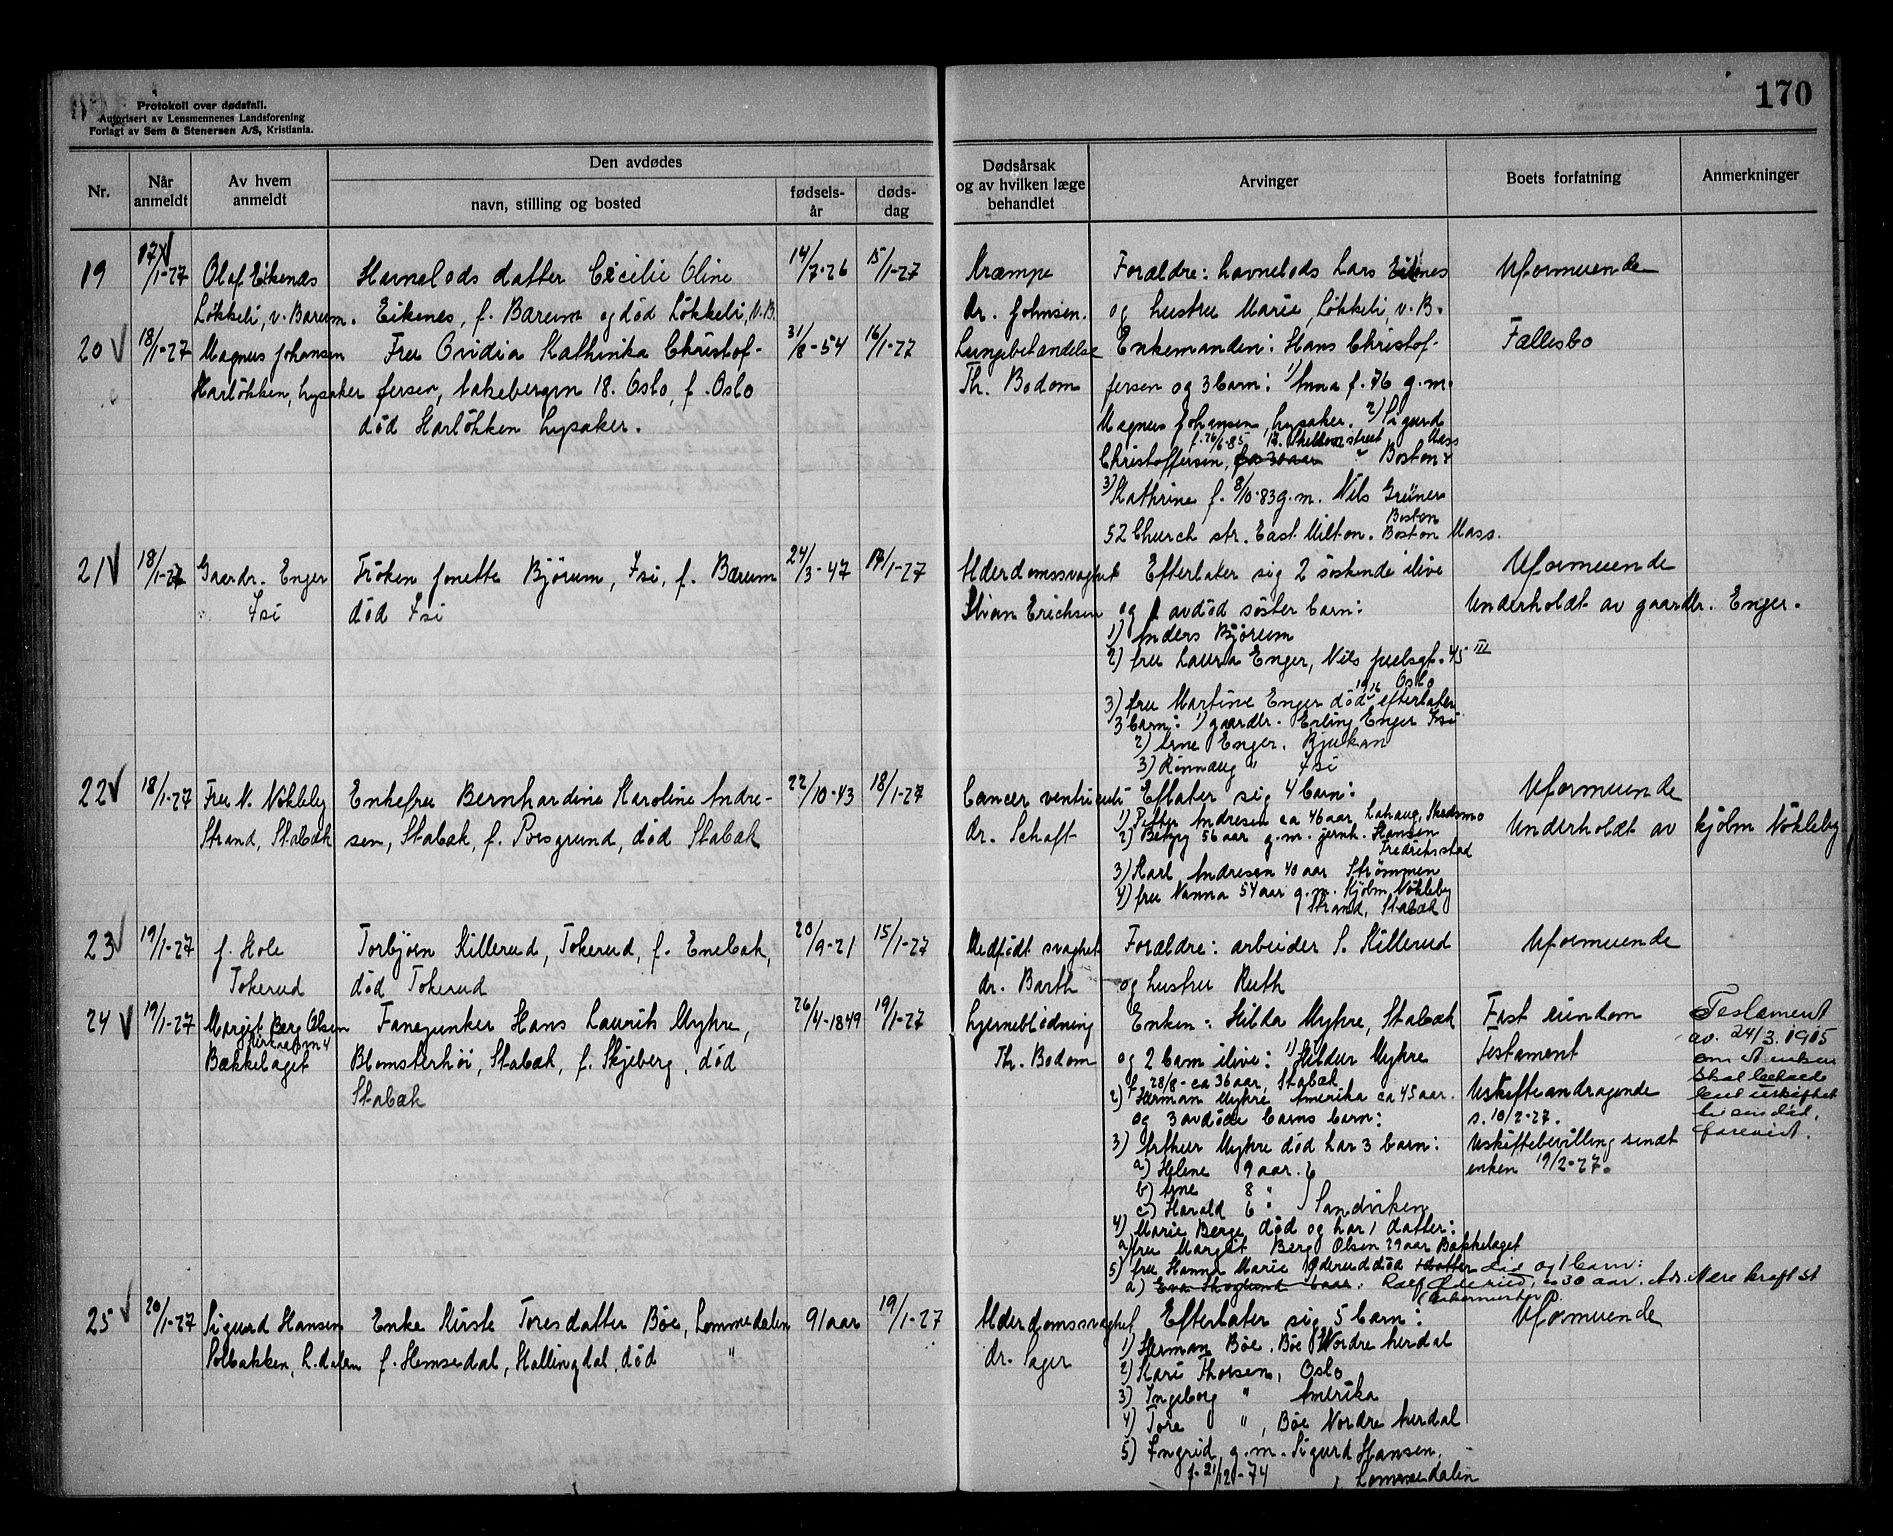 Protokoll over dødsfall.
Autorisert av Lensmennenes Landsforening
Forlagt av Sem & Stenersen A/S, Kristiania.
170
Nr.
Når anmeldt
Av hvem anmeldt
Den avdødes
navn, stilling og bosted
fødsels-år
døds-dag
Dødsårsak og av hvilken læge behandlet
Arvinger
Boets forfatning
Anmerkninger
19 17/1-27 Olaf Eikenæs Havnelods datter Cecilie Oline 14/7-26 15/1-27 Krampe Forældre: havnelods Lars Eiknes Uformuende
Løkkeli, v. Bærum. Eikenes, f. Bærum og død Løkkeli, V.B. dr. Johnsen. og hustru Marie, Løkkeli, v.B.
20 18/1-27 Magnus Johansen Fru Ovidia Kathinka Christof- 31/8-54 16/1-27 Lungebetændelse Enkemanden: Hans Christof- Fællesbo
Harløkken, Lysaker fersen, Akebergvn 18. Oslo, f. Oslo Th. Bodom fersen og 3 barn: 1) Anna f. 76 g.m.
død Harløkken Lysaker. Magnus Johansen, Lysaker. 2) Sigurd
f. 26/6-85 street Mass
Christoffersen, ca 30 aar Boston
3) Kathrine f. 8/10-83 g.m. Nils Grüner
Boston
52 Church str. East Milton. Boston Mass.
21 18/1-27 Gaardbr. Enger Frøken Jonette Bjørum, Isi, f. Bærum 24/3-47 17/1-27 Alderdomssvaghet Efterlater sig 2 søskende ilive Uformuende
Isi død Isi Stian Erichsen og 1 avdød søster barn: Underholdt av gaardbr. Enger.
1) Anders Bjørum
2) fru Laura Enger, Nils Juelsgt. 45 III
1916 Oslo
3) fru Martine Enger død efterlater
3 barn: 1) gaardbr. Erling Enger Isi
2) Arne Enger. Rjukan
3) Rønnaug " Isi
22 18/1-27 Fru N. Nøkleby Enkefru Bernhardine Karoline Andre- 22/10-43 18/1-27 Cancer ventriculi Eflater sig 4 barn: Uformuende
Strand, Stabæk sen, Stabæk, f. Porsgrund, død Stabæk dr. Schaft 1) Petter Andresen ca 46 aar, Lahaug, Skedsmo Underholdt av kjøbm Nøkleby
2) Betzy 56 aar g.m. jernh. Hansen
Fredriksstad
3) Karl Andresen 40 aar Strømmen
4) fru Nanna 54 aar g.m. Kjøbm. Nøkleby
Strand, Stabæk
23 19/1-27 J. Hole Torbjørn Killerud, Tokerud, f. Enebak, 20/9-21 15/1-27 Medfødt svaghet Forældre: arbeider S. Killerud Uformuende
Tokerud død Tokerud dr. Barth og hustru Ruth
24 19/1-27 Margit Berg Olsen Fanejunker Hans Laurits Myhre, 26/4-1849 19/1-27 hjerneblødning Enken: Hilda Myhre, Stabæk Fast eiendom Testament
Bækkelaget Blomsterhøi, Stabæk, f. Skjeberg, død Th. Bodom og 2 barn ilive: 1) Hildur Myhre Testament av. 24/3.1915
Stabæk f. 28/8- ca 36 aar, Stabæk om at enken
2) Herman Myhre Amerika ca 45 aar. Uskifteandragende skal beholde
og 3 avdøde barns barn: s. 10/2-27. boet uskiftet
3) Arthur Myhre død har 3 barn: Uskiftebevilling sendt til sin død,
a) Helene 9 aar. enken 19/2-27. forevist.
b) Arne 8 "
c) Harald 6 " Sandviken
4) Marie Berge død og har 1 datter:
a) fru Margit Berg Olsen 29 aar Bækkelaget
5) fru Hanna Marie Øderud død datter død og 1 barn:
a) Eva Skoglunt 6 aar: Ralf Øderud, ca 30 aar. Adr. Nere kraftst
25 20/1-27 Sigurd Hansen Enke Kirste Toresdatter Bøe, Lommedalen 91 aar 19/1-27 Alderdomssvaghet Efterlater sig 5 barn: Uformuende
Solbakken, L.dalen f. Hemsedal, Hallingdal, død " dr. Sager 1) Herman Bøe. Bøe Nordre herdal
2) Kari Thoresen, Oslo
3) Ingeborg " Amerika
4) Tore ", Bøe Nordre herdal
5) Ingrid g.m. Sigurd Hansen,
f. 21/12-74 Lommedalen